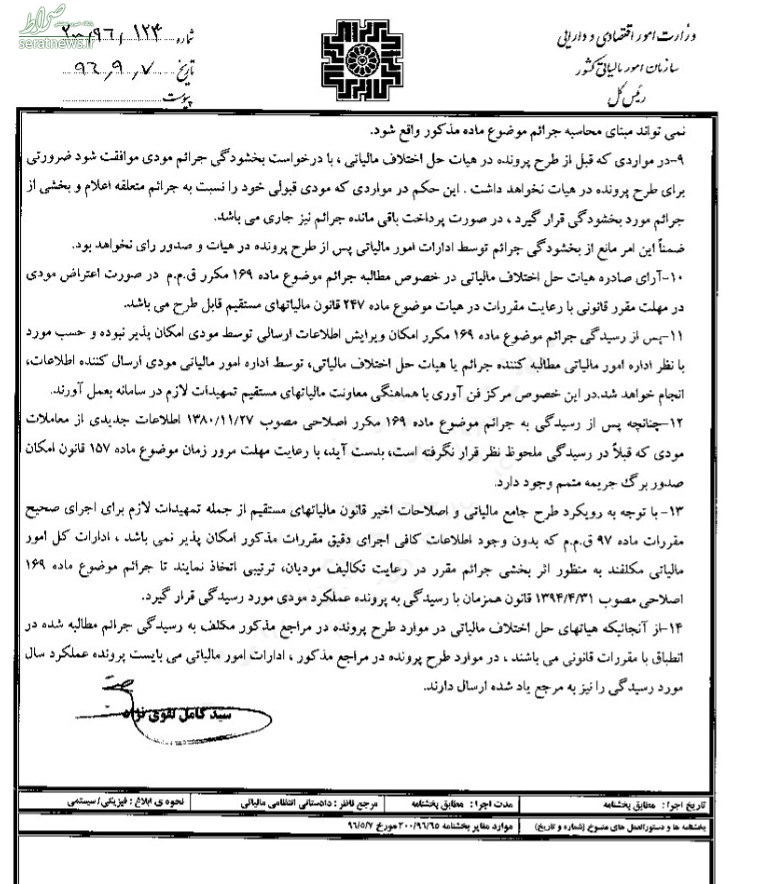 صراط
seratnews.ir
وزارت امور اقتصادی و دارایی
سازمان امور مالیاتی کشور
رئیس کل
شماره ۲۰۰/۹۶/۱۲۳
تاریخ ۹۶/۹/۷
پیوست
نمی تواند مبنای محاسبه جرائم موضوع ماده مذکور واقع شود.
۹-در مواردی که قبل از طرح پرونده در هیات حل اختلاف مالیاتی ، با درخواست بخشودگی جرائم مودی موافقت شود ضرورتی
برای طرح پرونده در هیات نخواهد داشت . این حکم در مواردی که مودی قبولی خود را نسبت به جرائم متعلقه اعلام و بخشی از
جرائم مورد بخشودگی قرار گیرد ، در صورت پرداخت باقی مانده جرائم نیز جاری می باشد.
ضمناً این امر مانع از بخشودگی جرائم توسط ادارات امور مالیاتی پس از طرح پرونده در هیات و صدور رای نخواهد بود.
۱۰-آرای صادره هیات حل اختلاف مالیاتی در خصوص مطالبه جرائم موضوع ماده ۱۶۹ مکرر ق.م.م در صورت اعتراض مودی
در مهلت مقرر قانونی با رعایت مقررات در هیات موضوع ماده ۲۴۷ قانون مالیاتهای مستقیم قابل طرح می باشد.
۱۱-پس از رسیدگی جرائم موضوع ماده ۱۶۹ مکرر امکان ویرایش اطلاعات ارسالی توسط مودی امکان پذیر نبوده و حسب مورد
با نظر اداره امور مالیاتی مطالبه کننده جرائم یا هیات حل اختلاف مالیاتی، توسط اداره امور مالیاتی مودی ارسال کننده اطلاعات،
انجام خواهد شد.در این خصوص مرکز فن آوری با هماهنگی معاونت مالیاتهای مستقیم تمهیدات لازم در سامانه بعمل آورند.
۱۲-چنانچه پس از رسیدگی به جرائم موضوع ماده ۱۶۹ مکرر اصلاحی مصوب ۱۳۸۰/۱۱/۲۷ اطلاعات جدیدی از معاملات
مودی که قبلاً در رسیدگی ملحوظ نظر قرار نگرفته است، بدست آید، با رعایت مهلت مرور زمان موضوع ماده ۱۵۷ قانون امکان
صدور برگ جریمه متمم وجود دارد.
۱۳- با توجه به رویکرد طرح جامع مالیاتی و اصلاحات اخیر قانون مالیاتهای مستقیم از جمله تمهیدات لازم برای اجرای صحیح
مقررات ماده ۹۷ ق.م.م که بدون وجود اطلاعات کافی اجرای دقیق مقررات مذکور امکان پذیر نمی باشد ، ادارات کل امور
مالیاتی مکلفند به منظور اثر بخشی جرائم مقرر در رعایت تکالیف مودیان، ترتیبی اتخاذ نمایند تا جرائم موضوع ماده ۱۶۹
اصلاحی مصوب ۱۳۹۴/۴/۳۱ قانون همزمان با رسیدگی به پرونده عملکرد مودی مورد رسیدگی قرار گیرد.
۱۴-از آنجائیکه هیاتهای حل اختلاف مالیاتی در موارد طرح پرونده در مراجع مذکور مکلف به رسیدگی جرائم مطالبه شده در
انطباق با مقررات قانونی می باشند ، در موارد طرح پرونده در مراجع مذکور ، ادارات امور مالیاتی می بایست پرونده عملکرد سال
مورد رسیدگی را نیز به مرجع یاد شده ارسال دارند.
سید کامل تقوی نژاد
تاریخ اجرا : مطابق بخشنامه مدت اجرا : مطابق بخشنامه مرجع ناظر : دادستانی انتظامی مالیاتی نحوه ی ابلاغ : فیزیکی/سیستمی
بخشنامه ها و دستورالعمل های منسوخ (شماره و تاریخ) موارد مغایر بخشنامه ۲۰۰/۹۶/۶۵ مورخ ۹۶/۵/۷